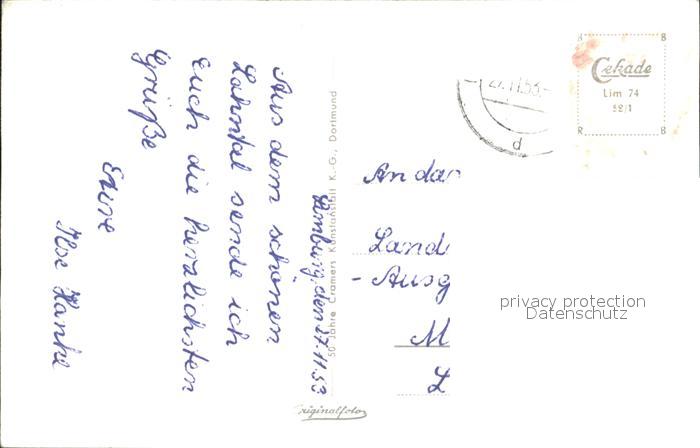 Limburg, den 27.11.53
Aus dem schönen
Lahntal sende ich
Euch die herzlichsten
Grüße
Eure
Ilse Hanke
50 Jahre Cramers Kunstanstalt K.-G., Dortmund
Originalfoto
27.11.53.-
d
B B
Cekade
Lim 74
52/1
R B
An das
Land
- Ausg
M
L
privacy protection
Datenschutz